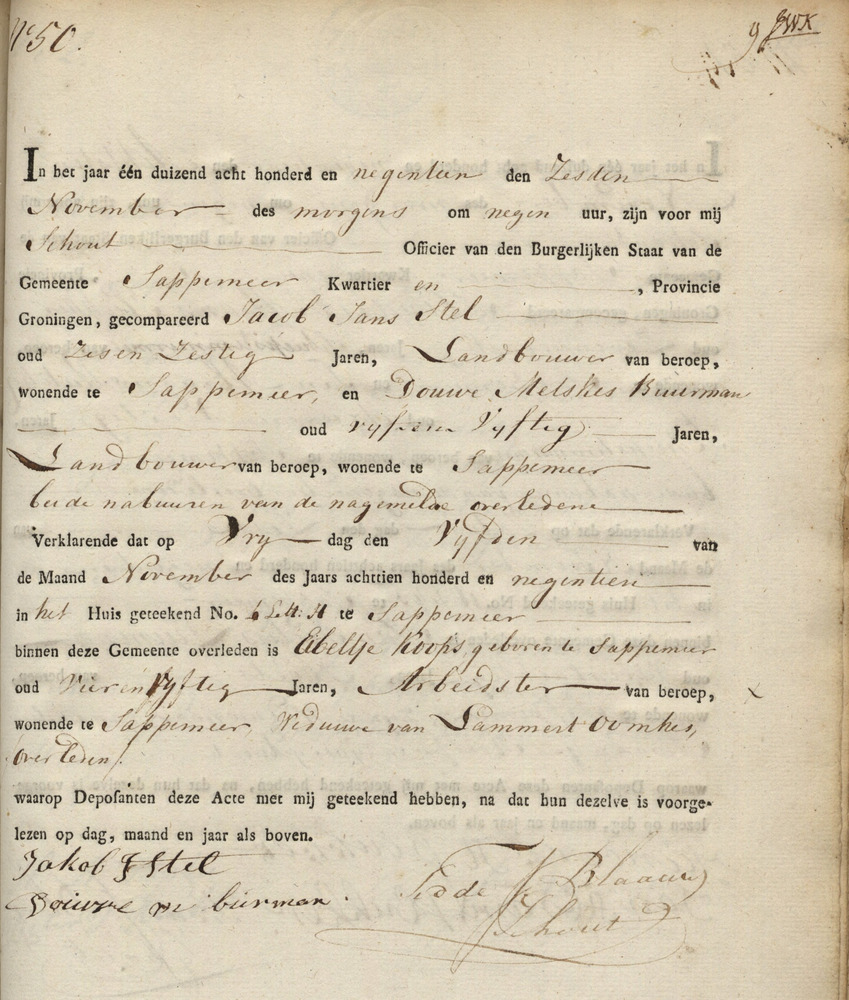 N° 50.
9 JWK
In het jaar één duizend acht honderd en negentien den Zesden
November des morgens om negen uur, zijn voor mij
Schout Officier van den Burgerlijken Staat van de
Gemeente Sappemeer Kwartier en , Provincie
Groningen, gecompareerd Jacob Jans Stel
oud Zesen Zestig Jaren, Landbouwer van beroep,
wonende te Sappemeer, en Douwe Melskes Buurman
oud vyfenn Vyftig Jaren,
Landbouwer van beroep, wonende te Sappemeer
beide nabuuren van de nagemelde overledene
Verklarende dat op Vry dag den Vyfden van
de Maand November des Jaars achttien honderd en negentien
in het Huis geteekend No. 6 Lett: H te Sappemeer
binnen deze Gemeente overleden is Ebeltje Koops, geboren te Sappemeer
oud Vier en Vyftig Jaren, Arbeidster van beroep,
wonende te Sappemeer, Weduwe van Lammert Oomkes,
overleden.
waarop Deposanten deze Acte met mij geteekend hebben, na dat hun dezelve is voorge-
lezen op dag, maand en jaar als boven.
Jakob J Stel
Douwe m burman.
Blaauw
Schout